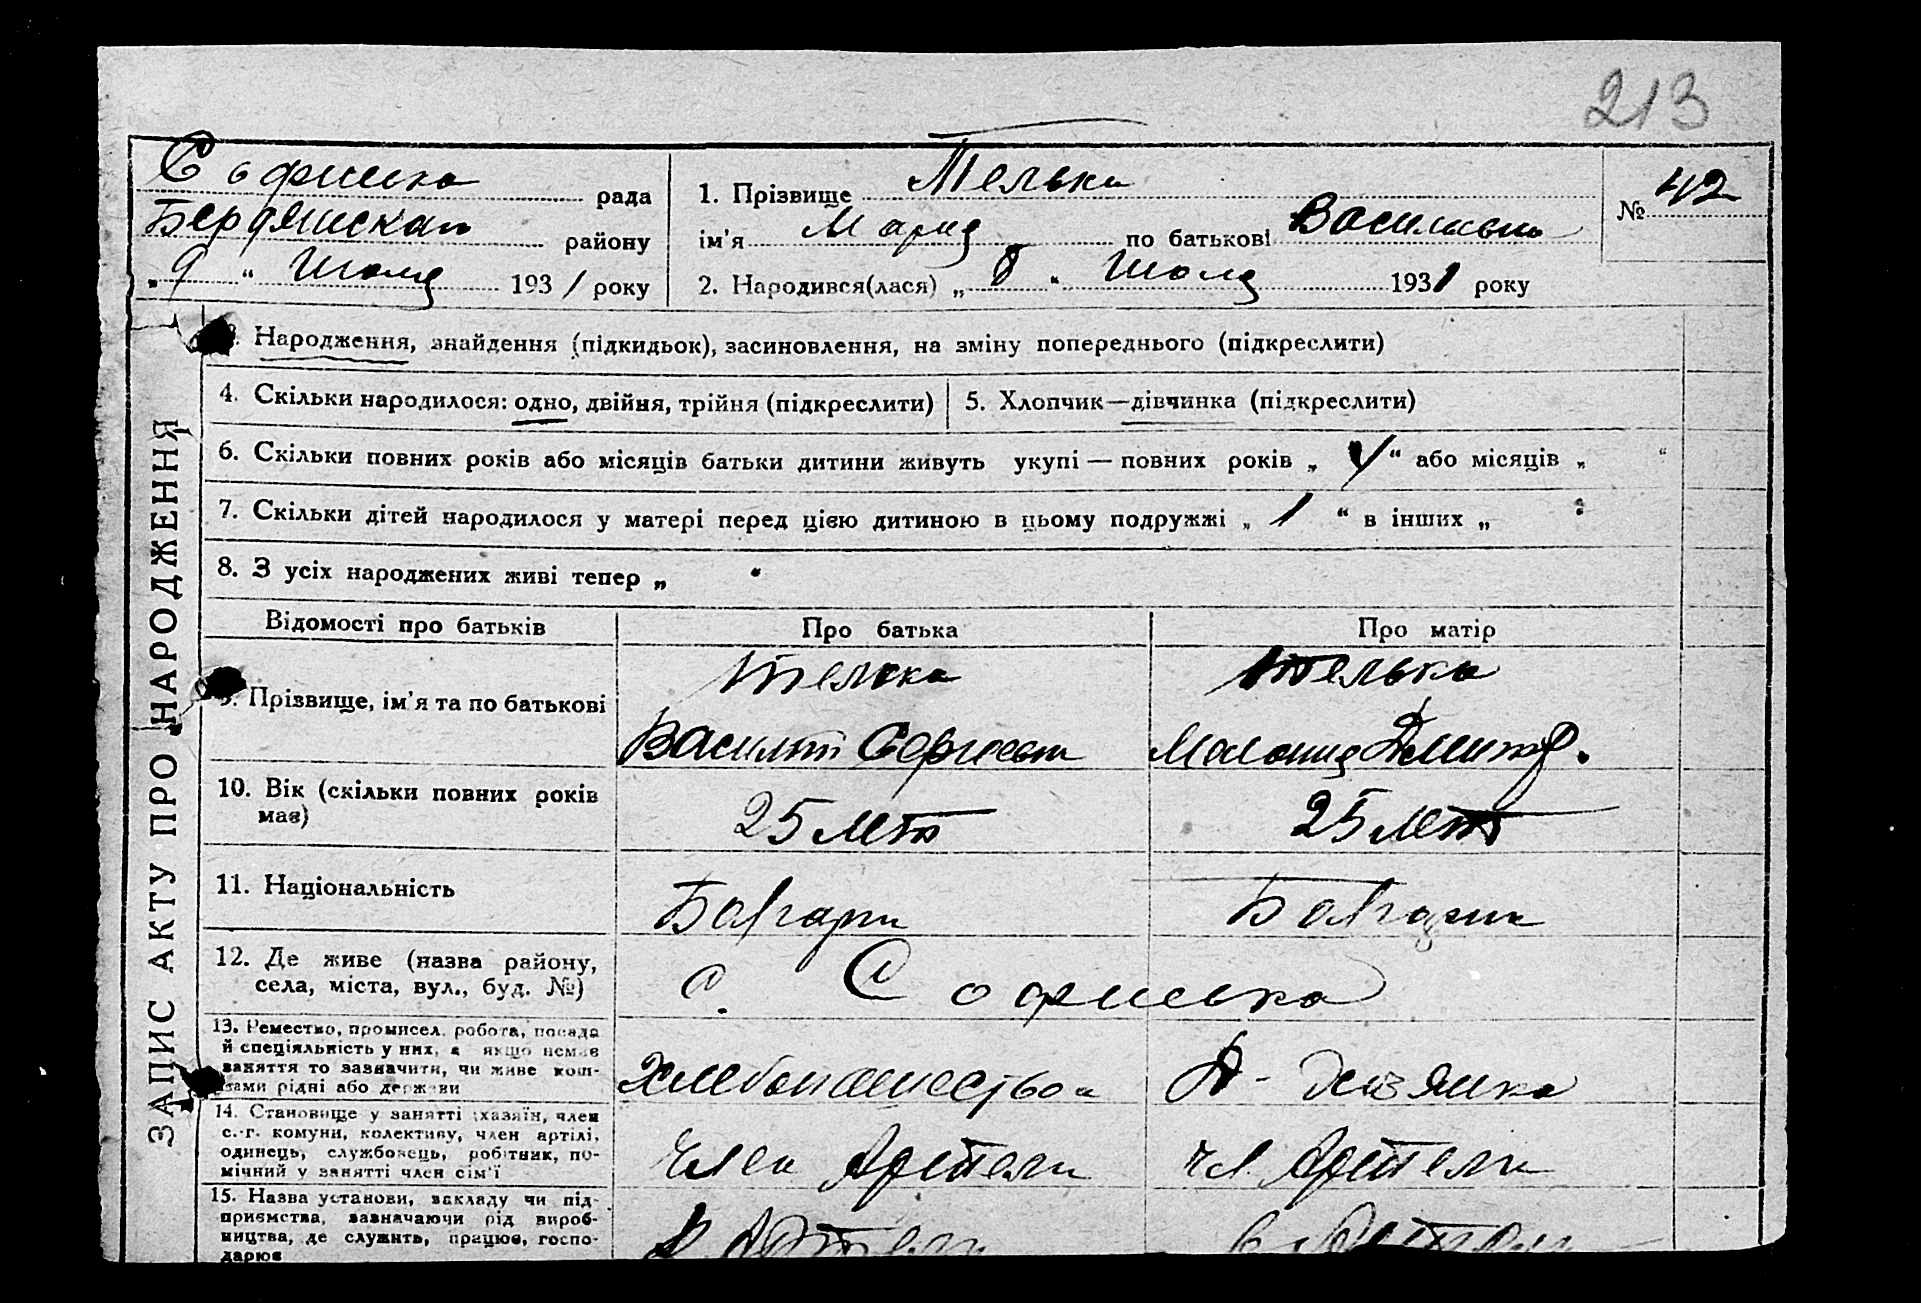 213
Софиевка рада
Бердянская району
„ 9 “ Июля 1931 року
1. Прізвище Телька
ім'я Мария по батькові Васильевна
2. Народився(лася) „ 8 “ Июля 1931 року
№ 42
ЗАПИС АКТУ ПРО НАРОДЖЕННЯ
3. Народження, знайдення (підкидьок), засиновлення, на зміну попереднього (підкреслити)
4. Скільки народилося: одно, двійня, трійня (підкреслити)
5. Хлопчик—дівчинка (підкреслити)
6. Скільки повних років або місяців батьки дитини живуть укупі — повних років „ “ або місяців „ “
7. Скільки дітей народилося у матері перед цією дитиною в цьому подружжі „ 1 “ в інших „ “
8. З усіх народжених живі тепер „ “
Відомості про батьків
Про батька
Про матір
9. Прізвище, ім'я та по батькові
Телька
Телька
Василий Сергеевич
Мелания Дмитр.
10. Вік (скільки повних років
має)
25 лет
25 лет
11. Національність
Болгари
Болгари
12. Де живе (назва району,
села, міста, вул., буд. №)
с. Софиевка
13. Ремество, промисел. робота, посада
й спеціяльність у них, а якщо немає
заняття то зазначити, чи живе кош-
тами рідні або держави
Хлебопашество
Д-хозяйка
14. Становище у занятті (хазяїн, член
с.-г. комуни, колективу, член артілі,
одинець, службовець, робітник, по-
мічний у занятті член сім'ї
Член Артели
чл Артели
15. Назва установи, закладу чи під-
приємства, зазначаючи рід вироб-
ництва, де служить, працює, госпо-
дарює
в Артели
в Артели